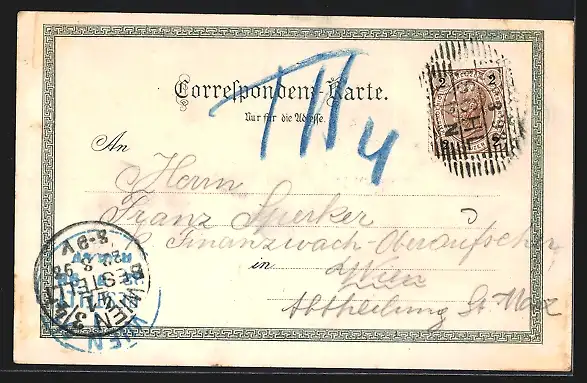 Correspondenz-Karte.
Nur für die Adresse.
III 4
2 2
WIEN
An
Herrn
Franz Sperker
k. Finanzwach-Oberaufseher
in Wien
Abtheilung St. Marx
WIEN 3/4
BESTELLT
8-9V
WIEN